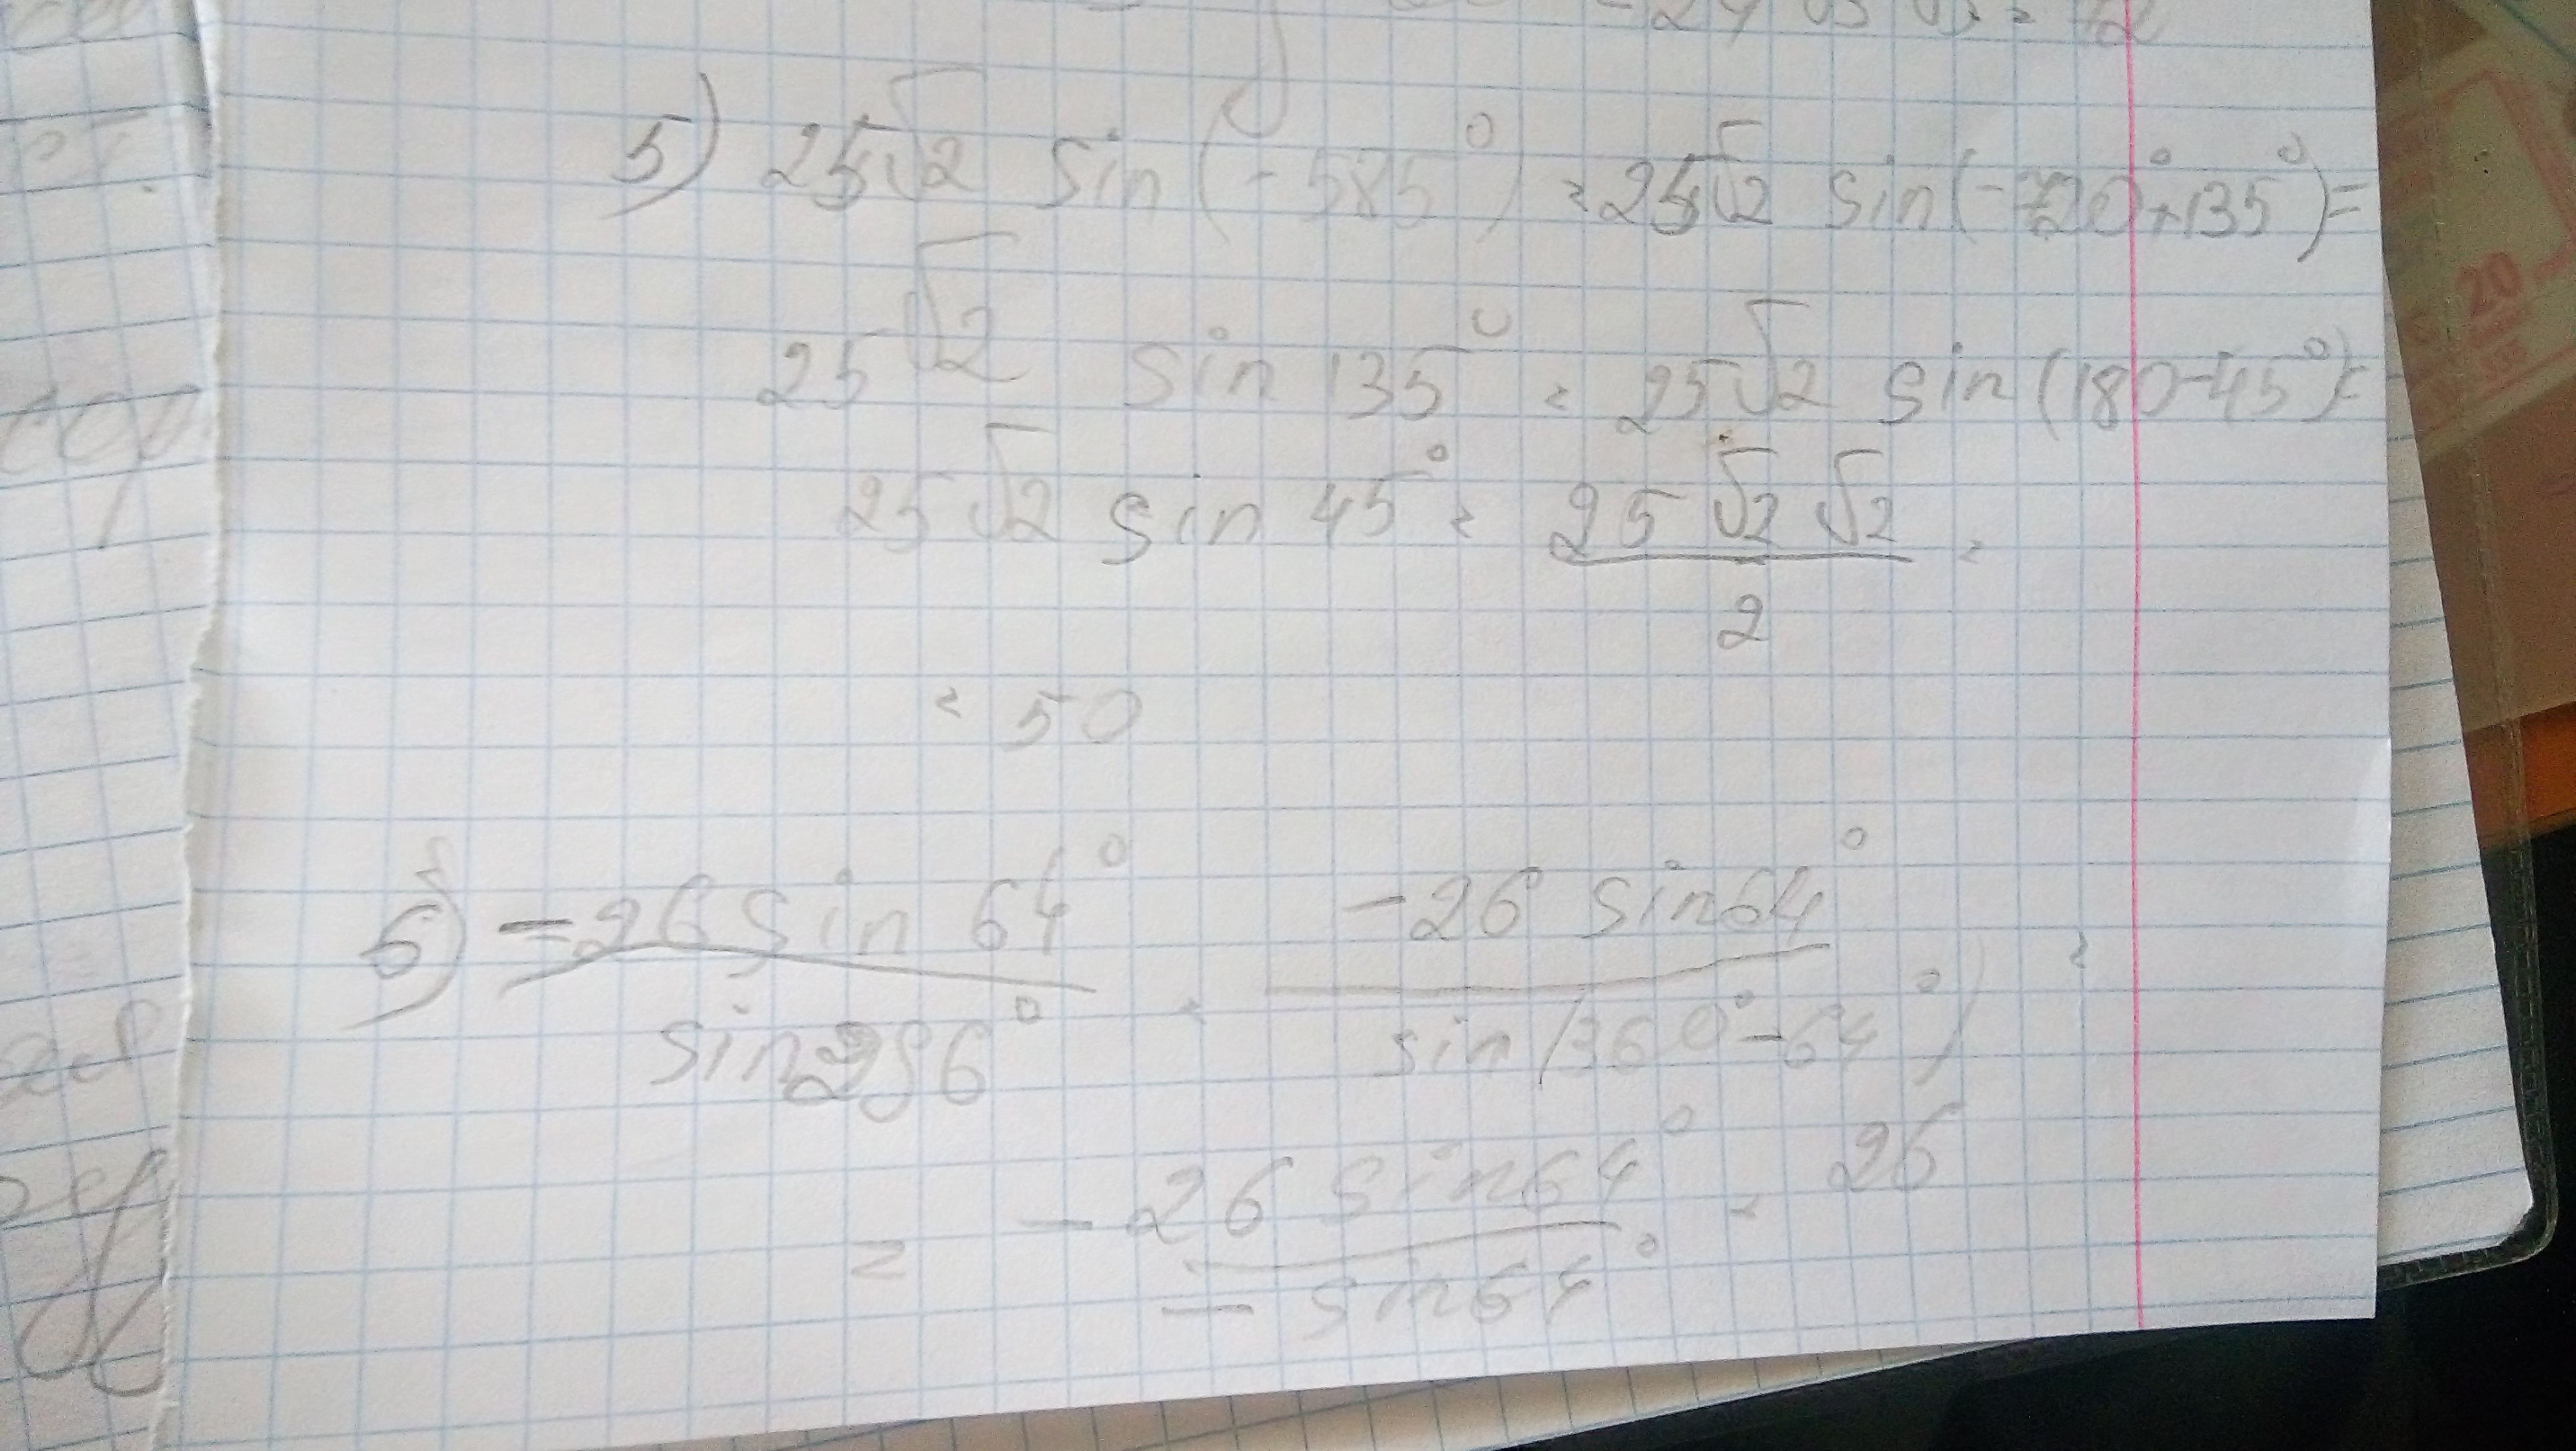 5) 25√2 sin(-585°) = 25√2 sin(-720°+135°)=
25√2 sin 135° = 25√2 sin(180-45°)=
25√2 sin 45° = 25 √2 √2 / 2 =
= 50
6) -26 sin 64° / sin296° = -26 sin64° / sin(360°-64°) =
= -26 sin64° / -sin64° = 26
20